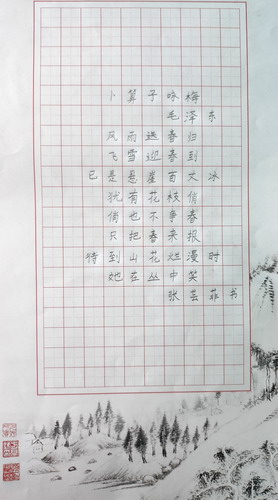 卜算子咏梅
毛泽东
风雨送春归
飞雪迎春到
已是悬崖百丈冰
犹有花枝俏
俏也不争春
只把春来报
待到山花烂漫时
她在丛中笑
张芸菲书